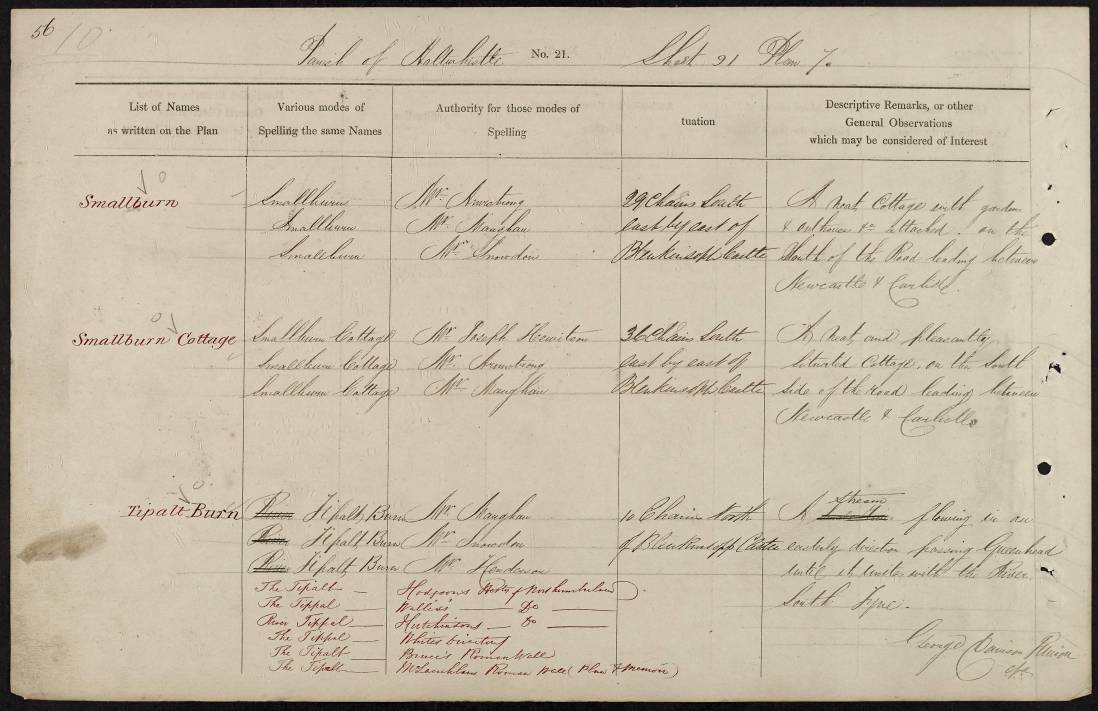 56
10
Parish of Haltwhistle No. 21. Sheet 91 Plan 7.
List of Names
as written on the Plan
Various modes of
Spelling the same Names
Authority for those modes of
Spelling
tuation
Descriptive Remarks, or other
General Observations
which may be considered of Interest
Smallburn
Smallburn
Smallburn
Smallburn
Mr. Armstrong
Mr. Maughan
Mr. Snowdon
29 Chains South
east by east of
Blenkinsoph Castle
A Neat Cottage with garden
& outhouse &c attached. on the
South of the Road leading between
Newcastle & Carlisle.
Smallburn Cottage
Smallburn Cottage
Smallburn Cottage
Smallburn Cottage
Mr. Joseph Hewitson
Mr. Armstrong
Mr. Maughan
36 Chains South
east by east of
Blenkinsoph Castle
A Neat, and pleasantly
situated Cottage, on the South
side of the Road leading between
Newcastle & Carlisle
Tipalt Burn
River Tipalt Burn
River Tipalt Burn
River Tipalt Burn
The Tipalt
The Tippal
River Tippal
The Tippal
The Tipalt
The Tipalt
Mr. Maughan
Mr. Snowdon
Mr. Henderson
Hodgsons Histy of Northumberland
Wallis's Do
Hutchinsons Do
Whites Directory
Bruce's Roman Wall
McLauchlans Roman Wall (Plan & Memoir)
10 Chains North
of Blenkinsopp Castle
stream
A flowing in an
easterly direction passing Greenhead
until it unites with the River
South Tyne.
George